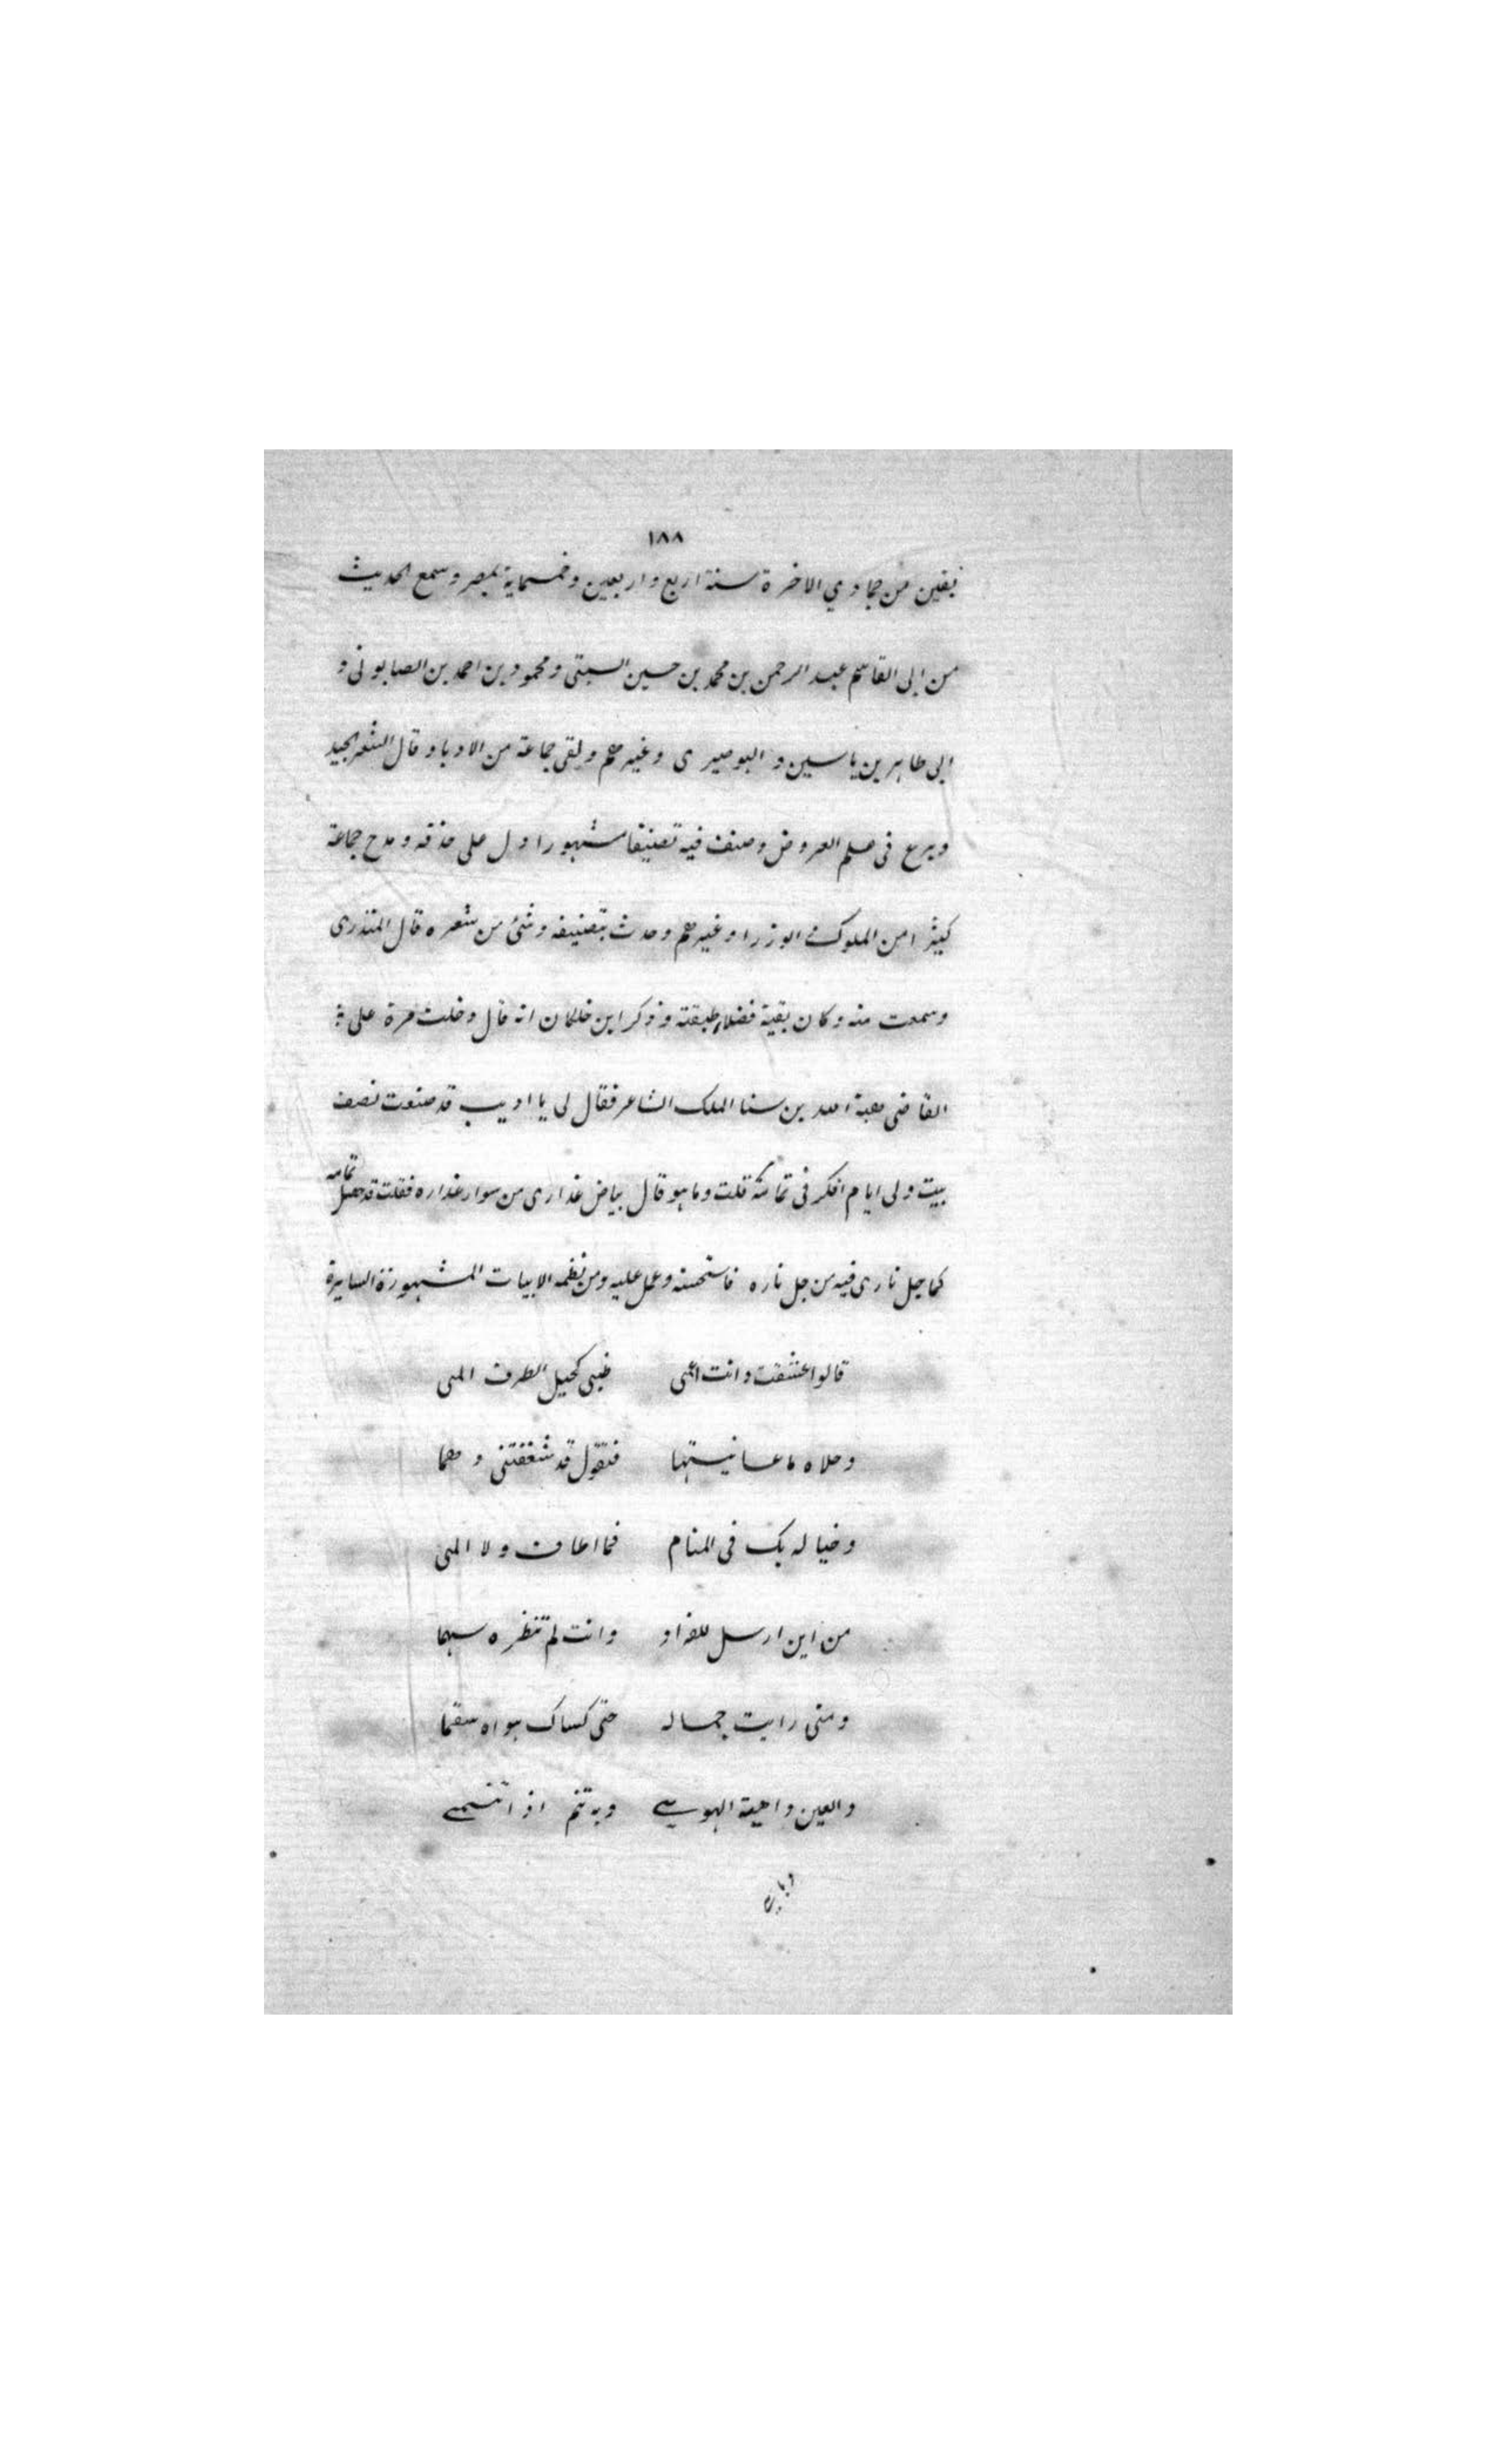 ١٨٨
بقين من جمادي الاخرة سنة اربع واربعين وخمسماية بمصر وسمع الحديث
من ابى القاسم عبد الرحمن بن محمد بن حسين السبتى ومحمود بن احمد بن الصابونى و
ابى طاهر بن ياسين و البوصيرى وغيرهم ولقى جماعة من الادبا وقال الشعر الجيد
وبرع فى علم العروض وصنف فيه تصنيفا مشهورا دل على حذقه ومدح جماعة
كثيرا من الملوك و الوزرا وغيرهم وحدث بتصنيفه وشئ من شعره قال المنذرى
وسمعت منه وكان بقية فضلاء طبقته وذكر ابن خلكان انه قال دخلت مرة على
القاضى هبة الله بن سنا الملك الشاعر فقال لى يا اديب قد صنعت نصف
بيت ولى ايام افكر فى تمامه قلت وما هو قال بياض عذارى من سواد عذاره فقلت قد حصل تمامه
كما جل نارى فيه من جل ناره فاستحسنه وعمل عليه ومن نظمه الابيات المشهورة السايرة
قالوا عشقت وانت اعمى ظبى كحيل الطرف المى
وحلاه ما عاينتها فتقول قد شغفتنى وهما
وخياله بك فى المنام فما اطاف ولا المى
من اين ارسل للفواد وانت لم تنظره سهما
ومتى رايت جماله حتى كساك هواه سقما
والعين داعية الهوى وبه تنم اذا تنمى
وباى